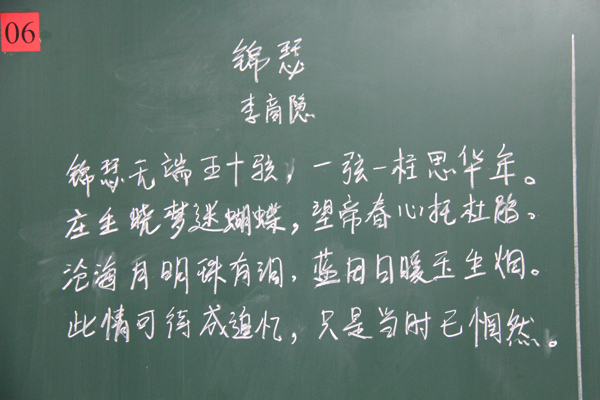 06
锦瑟
李商隐
锦瑟无端五十弦，一弦一柱思华年。
庄生晓梦迷蝴蝶，望帝春心托杜鹃。
沧海月明珠有泪，蓝田日暖玉生烟。
此情可待成追忆，只是当时已惘然。